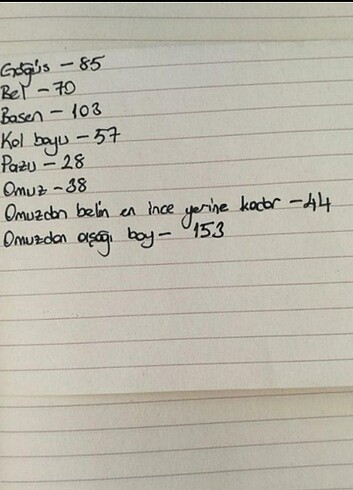 Göğüs - 85
Bel - 70
Basen - 103
Kol boyu - 57
Pazu - 28
Omuz - 38
Omuzdan belin en ince yerine kadar - 44
Omuzdan aşağı boy - 153